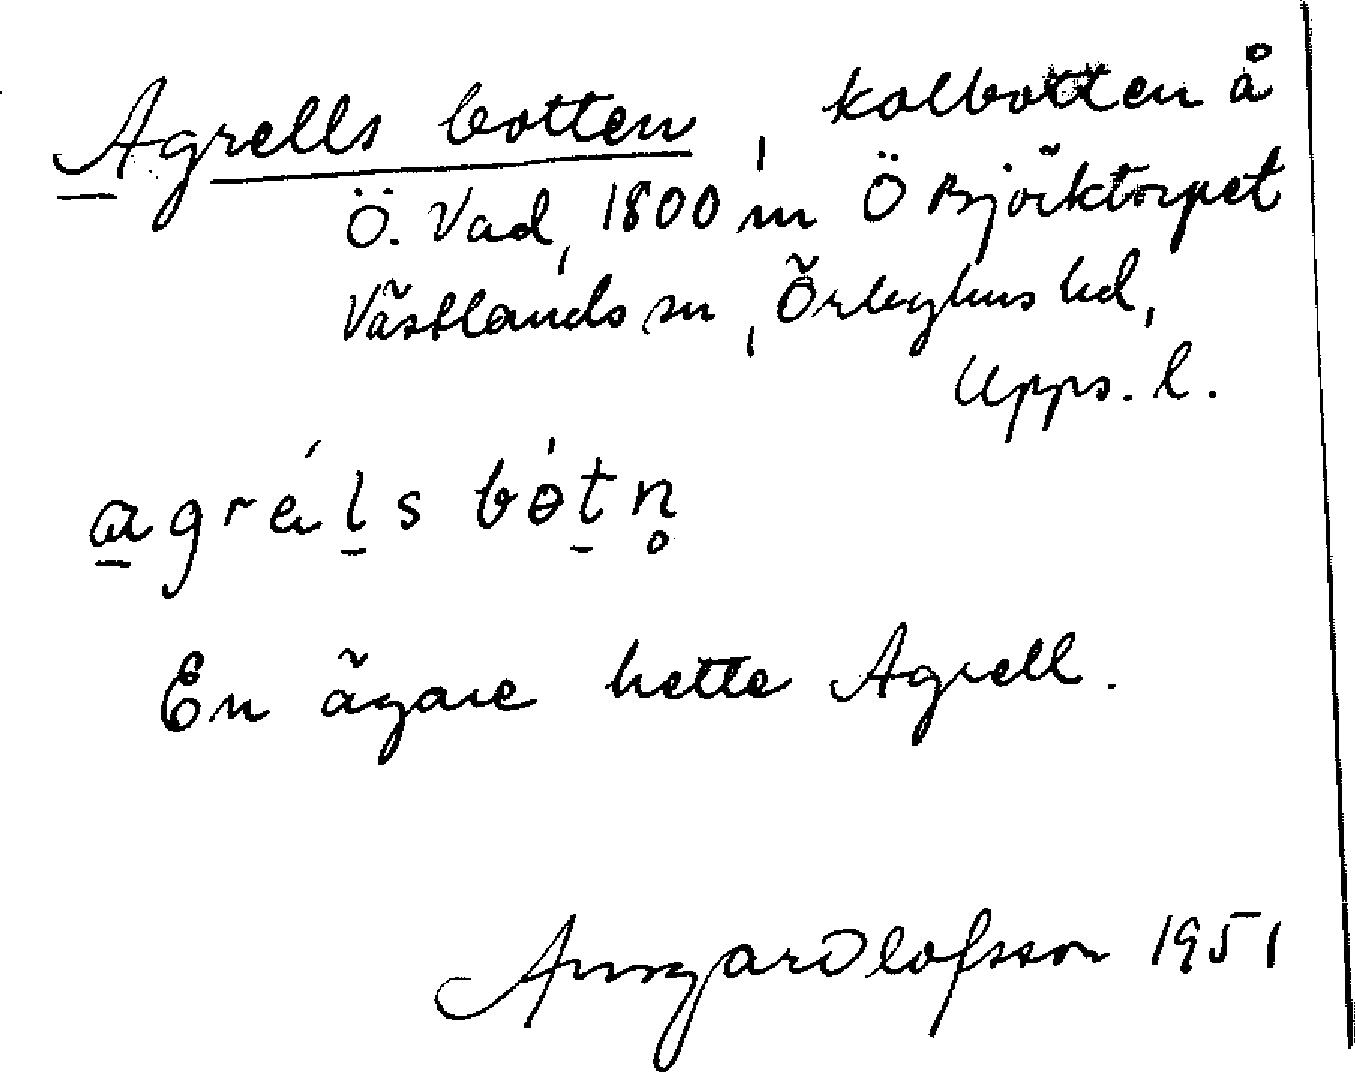 Agrells botten, kolbotten å
Ö. Vad, 1800 m Ö Björktorpet
Västlands sn, Örbyhus hd,
Upps. l.
agrels botn̥
En ägare hette Agrell.
Ansgar Olofsson 1951